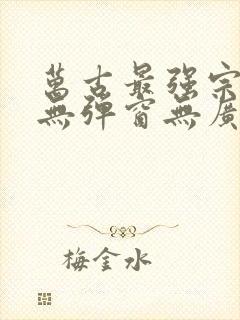 萬古最强宗
無彈窗無廣
梅金水